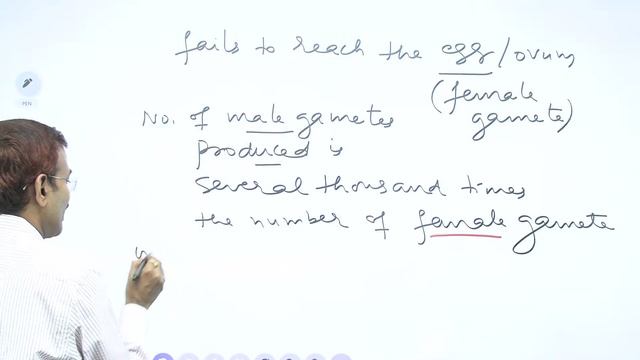 fails to reach the egg/ovum
(female
gamete)
No. of male gametes
produced is
several thousand times
the number of female gamete
PEN